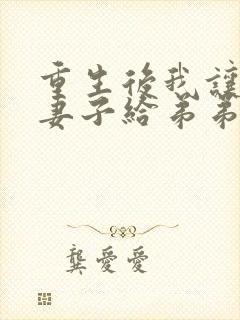 重生後我讓
妻子給弟弟
龔愛愛